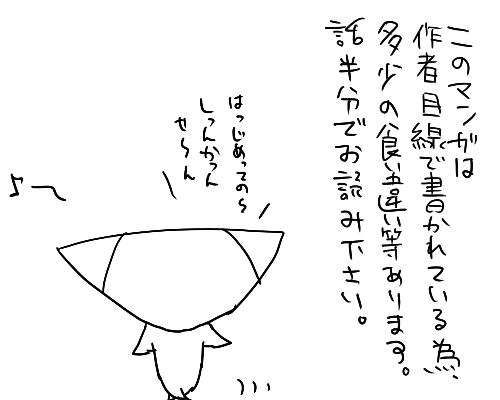 このマンガは
作者目線で書かれている為
多少の食い違い等あります。
話半分でお読み下さい。
はっじめってのぅ
しっんかっん
せーん
♪〜